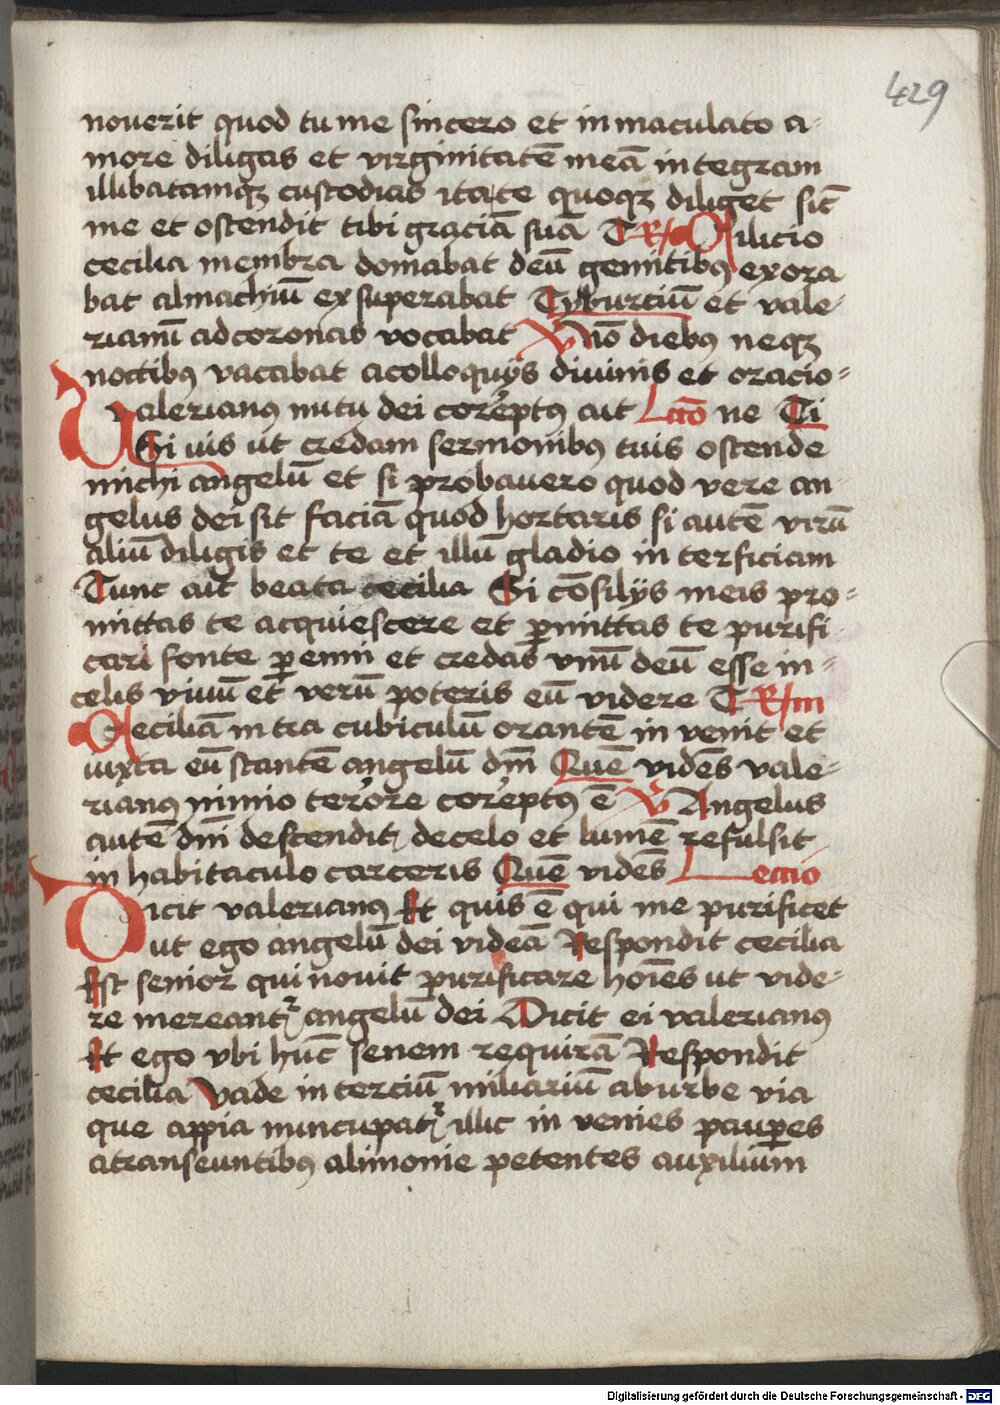 429
nouerit quod tu me sincero et inmaculato a-
more diligas et virginitatē meā integram
illibatamqꝫ custodias ita te quoqꝫ diliget sic̄
me et ostendit tibi graciā suā T R/ Cilicio
cecilia membra domabat deū gemitibꝯ exora
bat almachiū exsuperabat Tyburciū et vale-
rianū ad coronas vocabat V Nō diebꝯ neqꝫ
noctibꝯ vacabat a colloquijs diuinis et oracio-
Valerianꝯ nutu dei coreptꝯ ait Lctō ne Ti
Si uis ut credam sermonibꝯ tuis ostende
michi angelū et si probauero quod vere an-
gelus dei sit faciā quod hortaris si autē virū
aliū diligis et te et illū gladio interficiam
Tunc ait beata cecilia Si cōsilijs meis pro-
mittas te acquiescere et ꝑmittas te purifi-
cari fonte ꝑenni et credas vnū deū esse in-
celis viuū et verū poteris eū videre T R/ m
Ceciliā intra cubiculū orantē inuenit et
iuxta eū stantē angelū dm̄ Quē vidēs vale-
rianꝯ nimio terore coreptꝯ ē V Angelus
autē dm̄ descendit de celo et lumē refulsit
in habitaculo carceris Quē vidēs Lectio
Dicit valerianꝯ Et quis ē qui me purificet
ut ego angelū dei videā Respondit cecilia
Est senior qui nouit purificare hoīes ut vide-
re mereantr angelū dei Dicit ei valerianꝯ
Et ego vbi huc̄ senem requirā Respondit
cecilia Vade in terciū miliariū ab urbe via
que appia nuncupatr illic inuenies pauꝑes
a transeuntibꝯ alimonie petentes auxilium
Digitalisierung gefördert durch die Deutsche Forschungsgemeinschaft - DFG